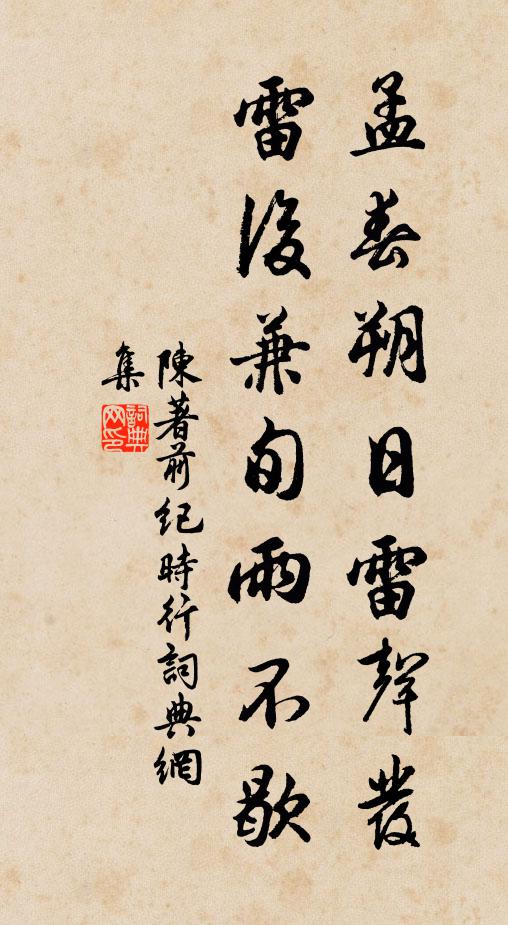 孟春朔日雷聲發
雷後兼旬雨不歇
陳著前紀時行詞典網
集
詞典
网印